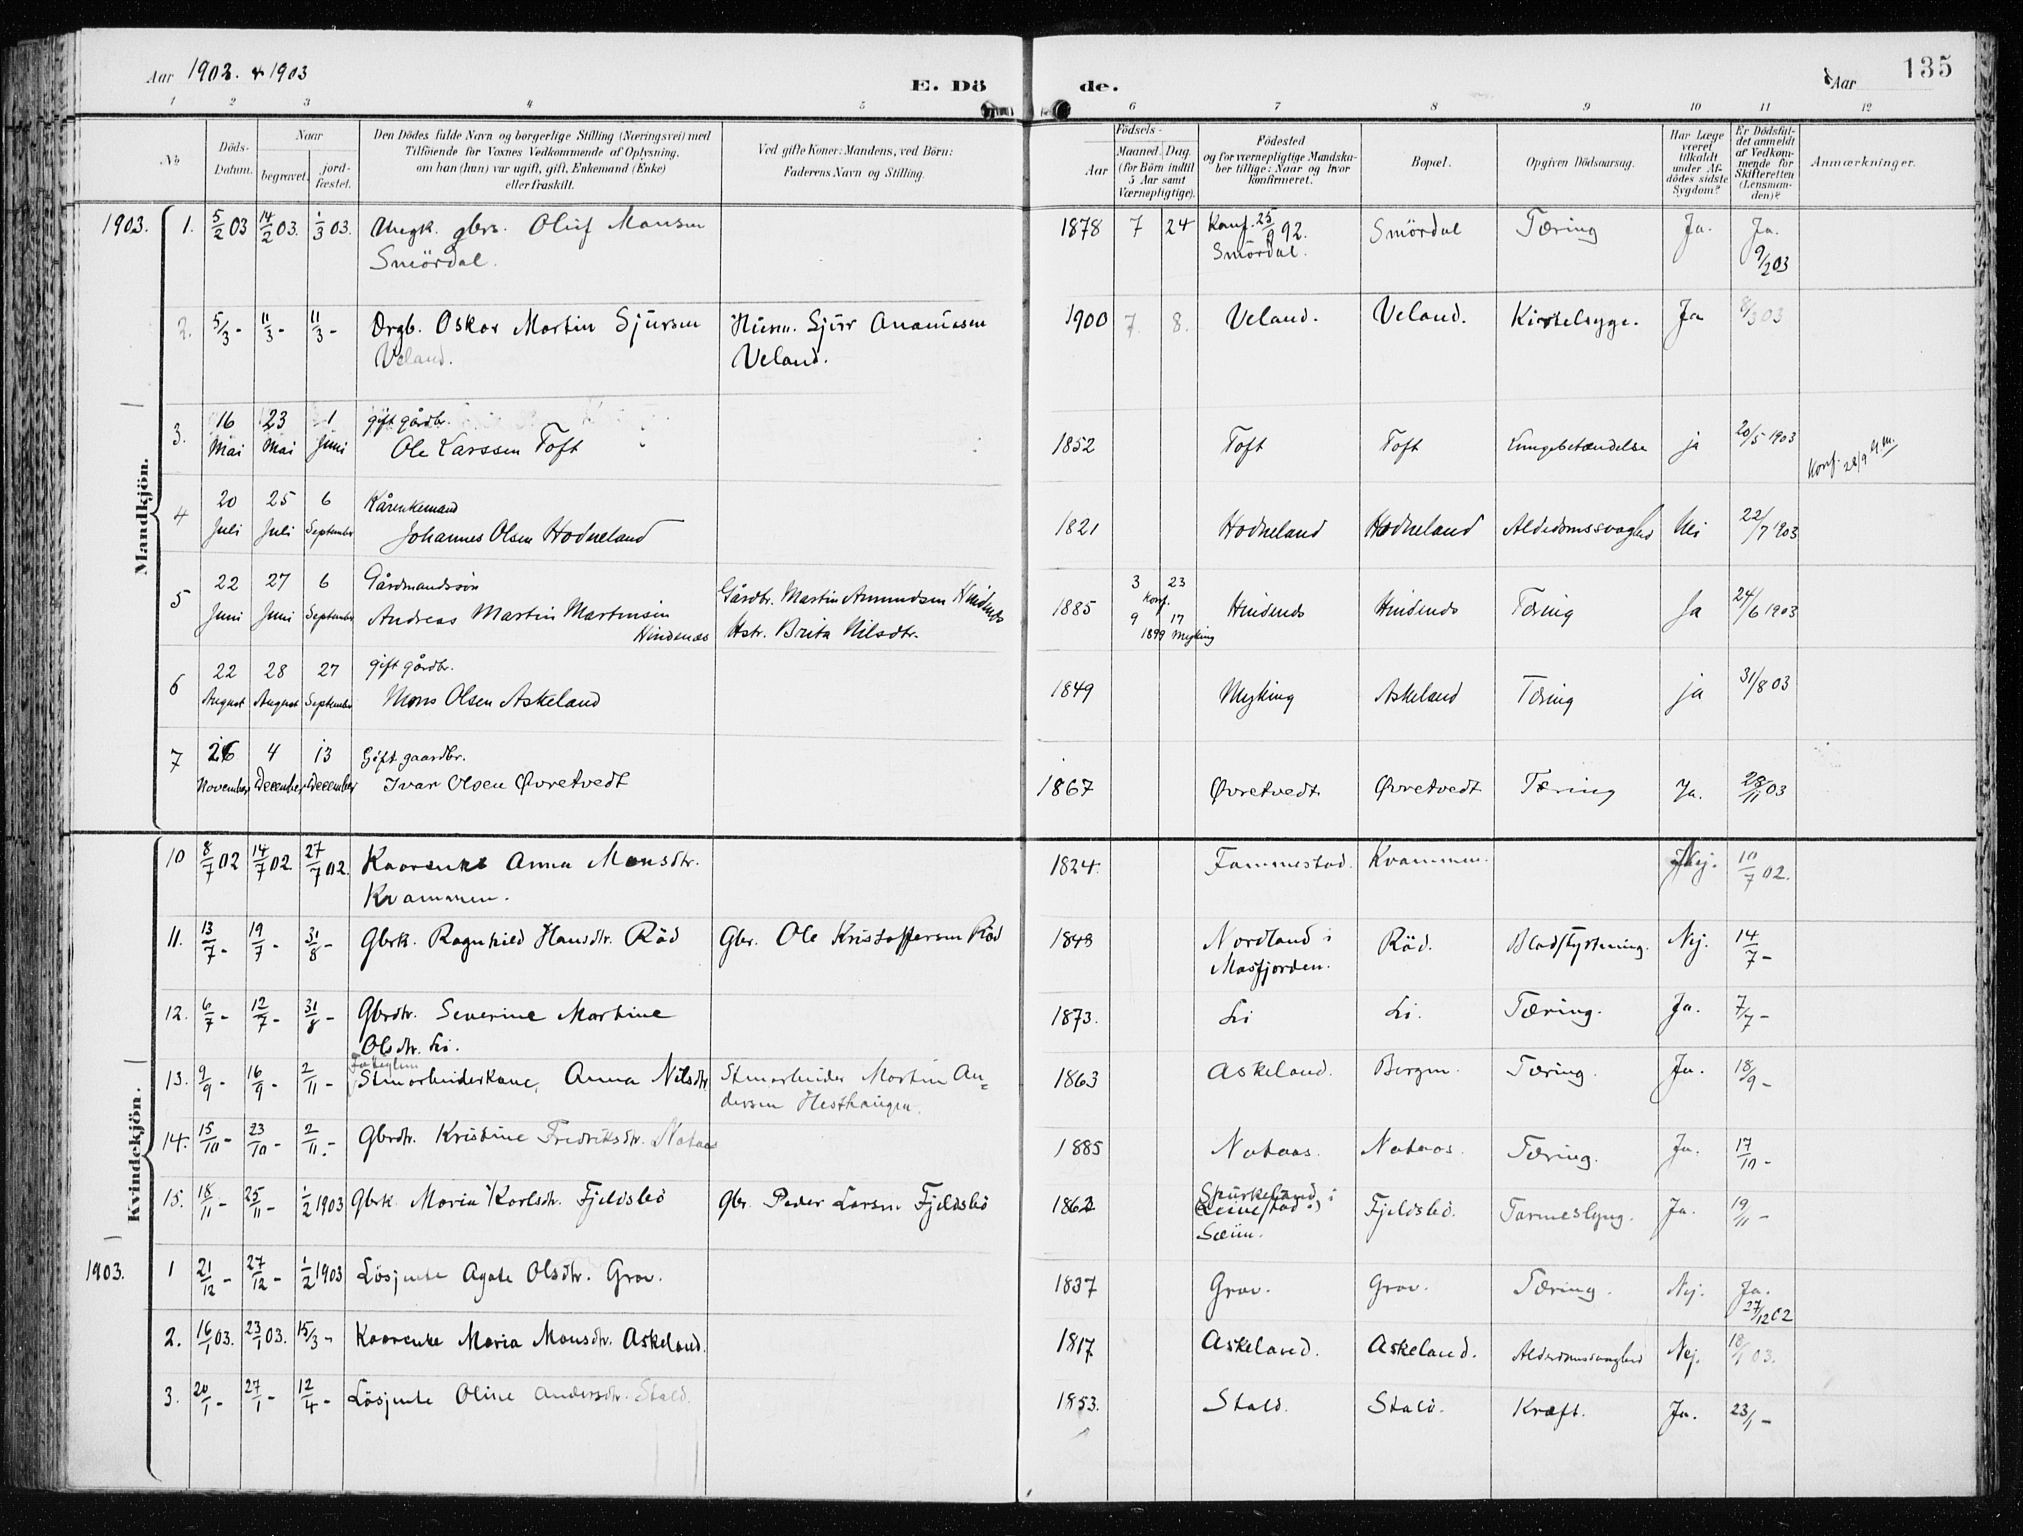 Aar 1902. & 1903
E. Dö de.
Aar 135
1 2 3 4 5 6 7 8 9 10 11 12
No
Döds-Datum.
Naar
begravet.
jordfæstet.
Den Dödes fulde Navn og borgerlige Stilling (Næringsvei) med
Tilföiende for Voxnes Vedkommende af Oplysning,
om han (hun) var ugift, gift, Enkemand (Enke)
eller fraskilt.
Ved gifte Koner: Mandens, ved Börn:
Faderens Navn og Stilling.
Födsels-
Aar
Maaned. Dag
(for Börn indtil
5 Aar samt
Værnepligtige).
Födested
og for værnepligtige Mandska-
ber tillige: Naar og hvor
konfirmeret.
Bopæl.
Opgiven Dödsaarsag.
Har Læge
været
tilkaldt
under Af-
dödes sidste
Sygdom?
Er Dödsfal-
det anmeldt
af Vedkom-
mende for
Skifteretten
(Lensman-
den)?
Anmærkninger.
Mandkjön.
1903. 1. 5/2 03 14/2 03. 1/3 03. Ungk. gbrs. Oluf Monsen 1878 7 24 Konf. 25/9 92. Smördal Tæring Ja. Ja.
Smördal. Smördal. 9/2 03
2. 5/3 - 11/3 - 11/3 - Drgb. Oskar Martin Sjursen Husm. Sjur Ananiasen 1900 7. 8. Veland. Veland. Kirtelsyge. Ja 8/3 03
Veland. Veland.
3. 16 Mai 23 Mai 1 Juni gift gårdbr.
Ole Larssen Toft 1852 Toft Toft Lungebetændelse ja 20/5 1903 Konf. 28/9
4 20 Juli 25 Juli 6 September Kårenkemand
Johannes Olsen Hodneland 1821 Hodneland Hodneland Alderdomssvaghed Nei 22/7 1903
5 22 Juni 27 Juni 6 September Gårdmandssøn Gårdbr. Martin Amundsen Hindenes 3 23
Andreas Martin Martinsen 1885 Konf. Hindenes Hindenes Tæring Ja 24/6 1903
Hindenæs Hstr. Brita Nilsdtr. 9 17
1899 Myking
6 22 August 28 August 27 September gift gårdbr.
Mons Olsen Askeland 1849 Myking Askeland Tæring ja 31/8 03
7 26 November 4 December 13 December Gift gaardbr.
Ivar Olsen Øvretvedt 1867 Øvretvedt Øvretvedt Tæring Ja. 28/11 03
Kvindekjön.
10 8/7 02 14/7 02 27/7 02. Kaarenke Anna Monsdtr. 1824. Fammestad. Kvammen. Nej. 10/7 02.
Kvammen.
11. 13/7 - 19/7 - 31/8 - Gbrk. Ragnhild Hansdtr. Räd Gbr. Ole Kristoffersen Räd 1848 Nordland i Räd. Blodstyrtning. Nej. 14/7 -
Masfjorden.
12. 6/7 - 12/7 - 31/8 - Gbrdtr. Severine Martine 1873. Li Li. Tæring. Ja. 7/7 -
Olsdtr. Li.
13. 9/9 - 16/9 - 2/11 - Stenarbeiderkone, Anna Nilsdtr Stenarbeider Martin An= 1863 Askeland. Bergen. Tæring. Ja. 18/9 -
dersen Hesthaugen.
14. 15/10 - 23/10 - 2/11. - Gbrdtr. Kristine Fredriksdtr. Nataas 1885 Nataas. Nataas. Tæring. Ja. 17/10 -
15. 18/11 - 25/11 - 1/2 1903 Gbrk. Maria Karlsdtr. Fjeldsbö Gbr. Peder Larsen Fjeldsbö 1862 Spurkeland i Fjeldsbö. Tarmeslyng. Ja. 19/11 -
Sæim.
1903. 1 21/12 - 27/12 - 1/2 1903 Lösjente Agate Olsdtr. Grov. 1837 Grov. Grov. Tæring. Nej. Ja.
27/12 02
2. 16/1 03. 23/1 03. 15/3 - Kaarenke Maria Monsdtr. Askeland. 1817 Askeland. Askeland. Alderdomssvaghed Nej. 18/1 03.
3. 20/1 - 27/1 - 12/4 - Lösjente Oline Andersdtr. Stald. 1853. Stald. Stald. Kræft. Ja. 23/1 -